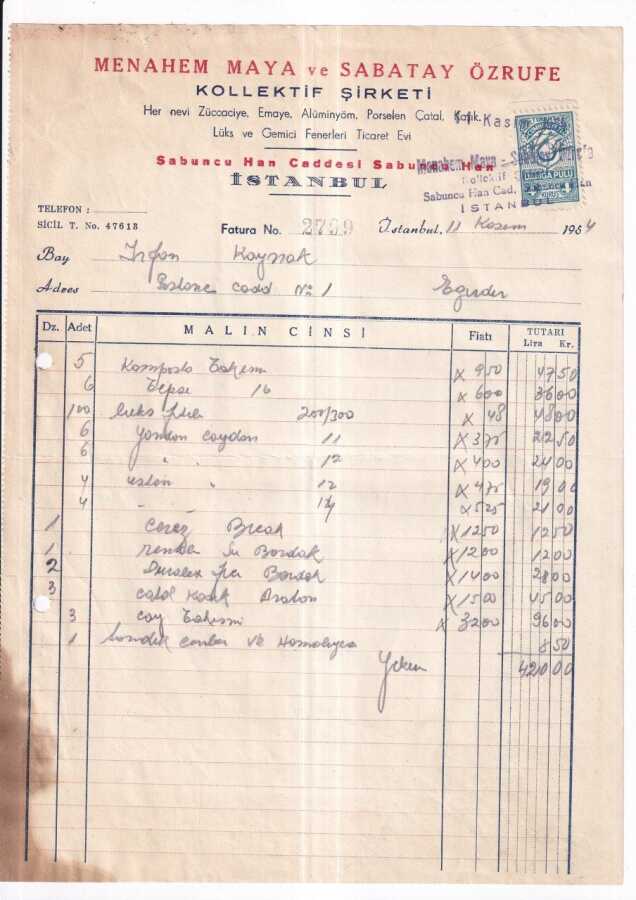 MENAHEM MAYA ve SABATAY ÖZRUFE
KOLLEKTİF ŞİRKETİ
Her nevi Züccaciye, Emaye, Alüminyöm, Porselen Çatal, Kaşık,
Lüks ve Gemici Fenerleri Ticaret Evi
Sabuncu Han Caddesi Sabuncu Han
İSTANBUL
11 Kas
Menahem Maya - Sabatay
Kollektif
Sabuncu Han Cad.
İSTANBUL
DAMGA PULU
TELEFON :
SİCİL T. No. 47613
Fatura No. 2799
İstanbul, 11 Kasım 1954
Bay İrfan Kaynak
Adres cadd No 1 Eğirdir
Dz. Adet MALIN CİNSİ Fiatı TUTARI
Lira Kr.
5 Komposto Takım x 950 4750
6 Tepsi 16 x 600 3600
100 200/300 x 48 4800
6 çaydan 11 x 375 2250
6 " " 12 x 400 2400
4 " 12 x 475 1900
4 14 x 525 2100
1 Çerez x 1250 1250
1 Su Bardak x 1200 1200
2 Bardak x 1400 2800
3 x 1500 4500
3 çay Takımı x 3200 9600
1 ve 850
Yekun 42100